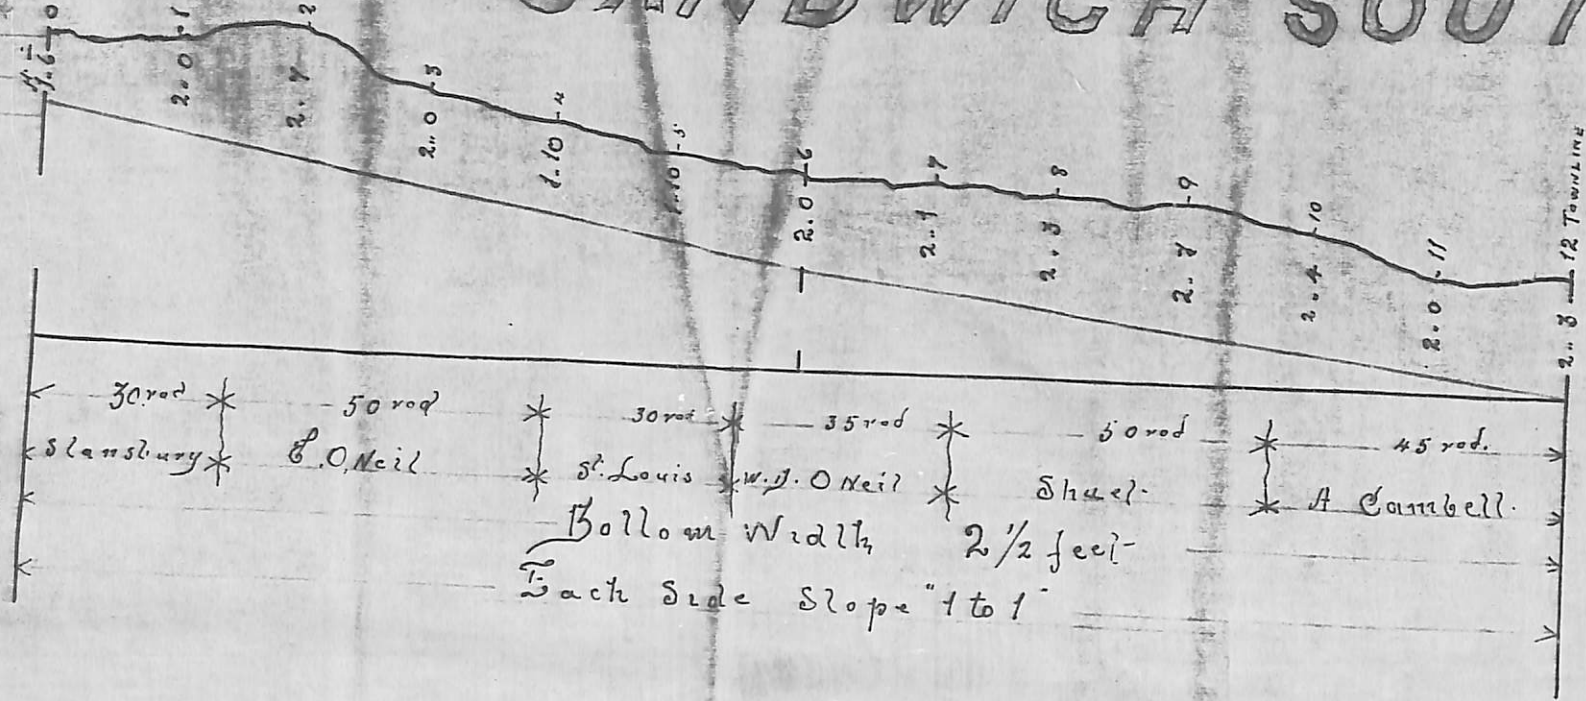 SANDWICH SOUT
0 1 2 3 4 5 6 7 8 9 10 11 12 TOWNLINE
2..0 2..7 2..0 1..10 1..10 2..0 2..1 2..3 2..4 2..0 2..3
30 rod 50 rod 30 rod 35 rod 50 rod 45 rod.
Slansbury O,Neil St. Louis O Neil Shuel A Cambell.
Bottom Width 2 1/2 feet
Each Side Slope "1 to 1"